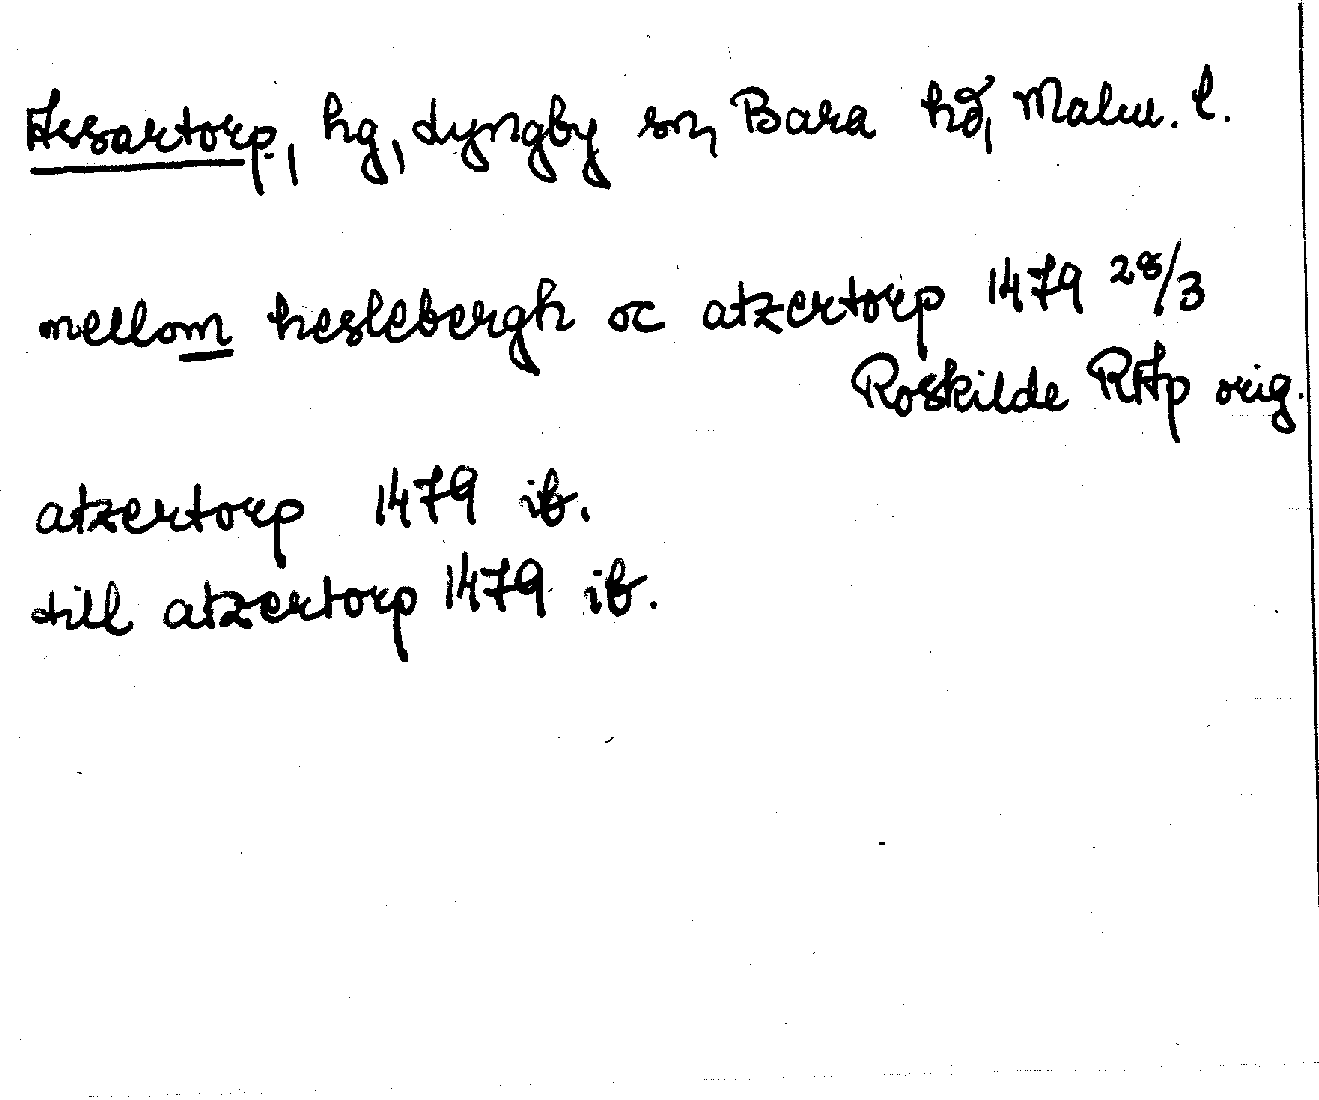 Assartorp, hg, Lyngby sn, Bara hd, Malm. l.
mellom heslebergh oc atzertorp 1479 28/3
Roskilde RAp orig.
atzertorp 1479 ib.
till atzertorp 1479 ib.